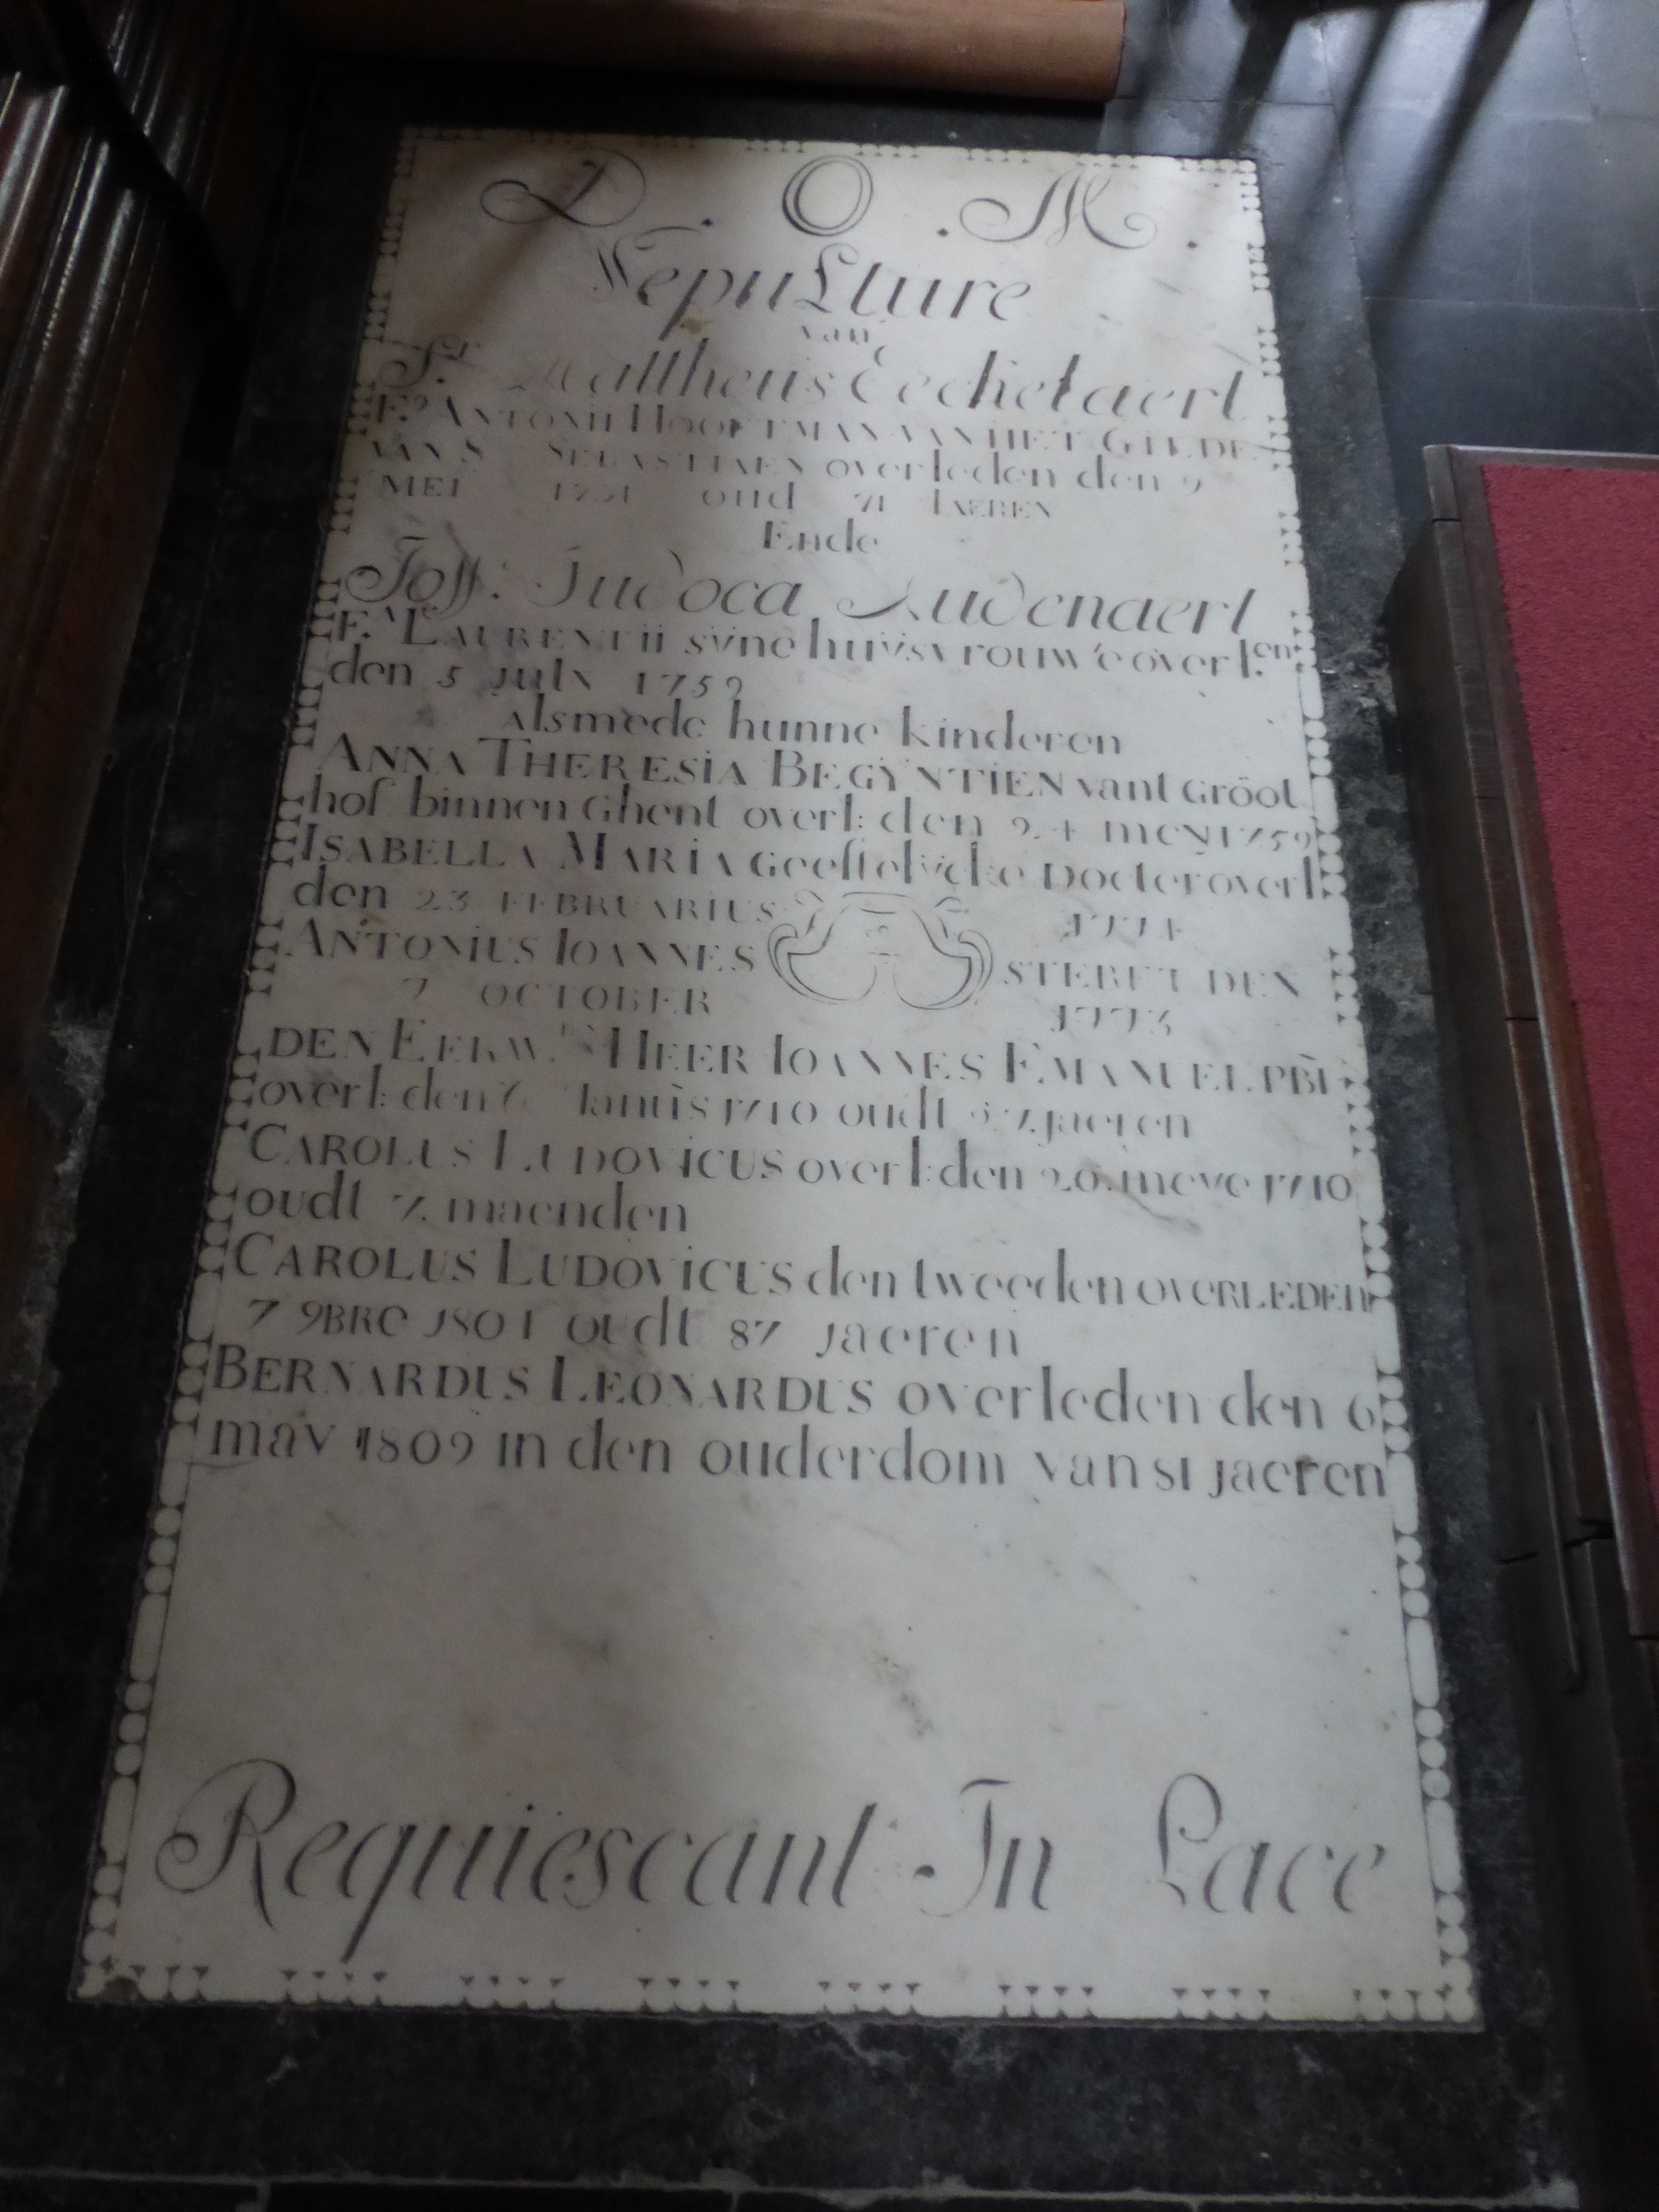 D. O. M.
Sepulture
van
Sr. Mattheus Eechetaert
Fs. ANTONII HOOFTMAN VAN HET GILDE
VAN S SEBASTIAEN overleden den 9
MEI oud 71 IAEREN
Ende
Joff. Judoca Audenaert
F.A LAURENTII syne huysvrouwe overl.en
den 5 july 1759
alsmede hunne kinderen
ANNA THERESIA BEGYNTIEN vant Gróot
hof binnen Ghent overl: den 24 mey 1759
ISABELLA MARIA Geestelycke Docter overl:
den 23 FEBRUARIUS 1771
ANTONIUS IOANNES STERFT DEN
7 OCTOBER 1773
DEN EERW. HEER IOANNES EMANUEL PBR
overl: den 6 oudt jaeren
CAROLUS LUDOVICUS overl: den 20. meye 1710
oudt 7. maenden
CAROLUS LUDOVICUS den tweeden OVERLEDEN
7 9BRE 1801 oudt 87 jaeren
BERNARDUS LEONARDUS overleden den 6
may 1809 in den ouderdom van 81 jaeren
Requiescant In Pace